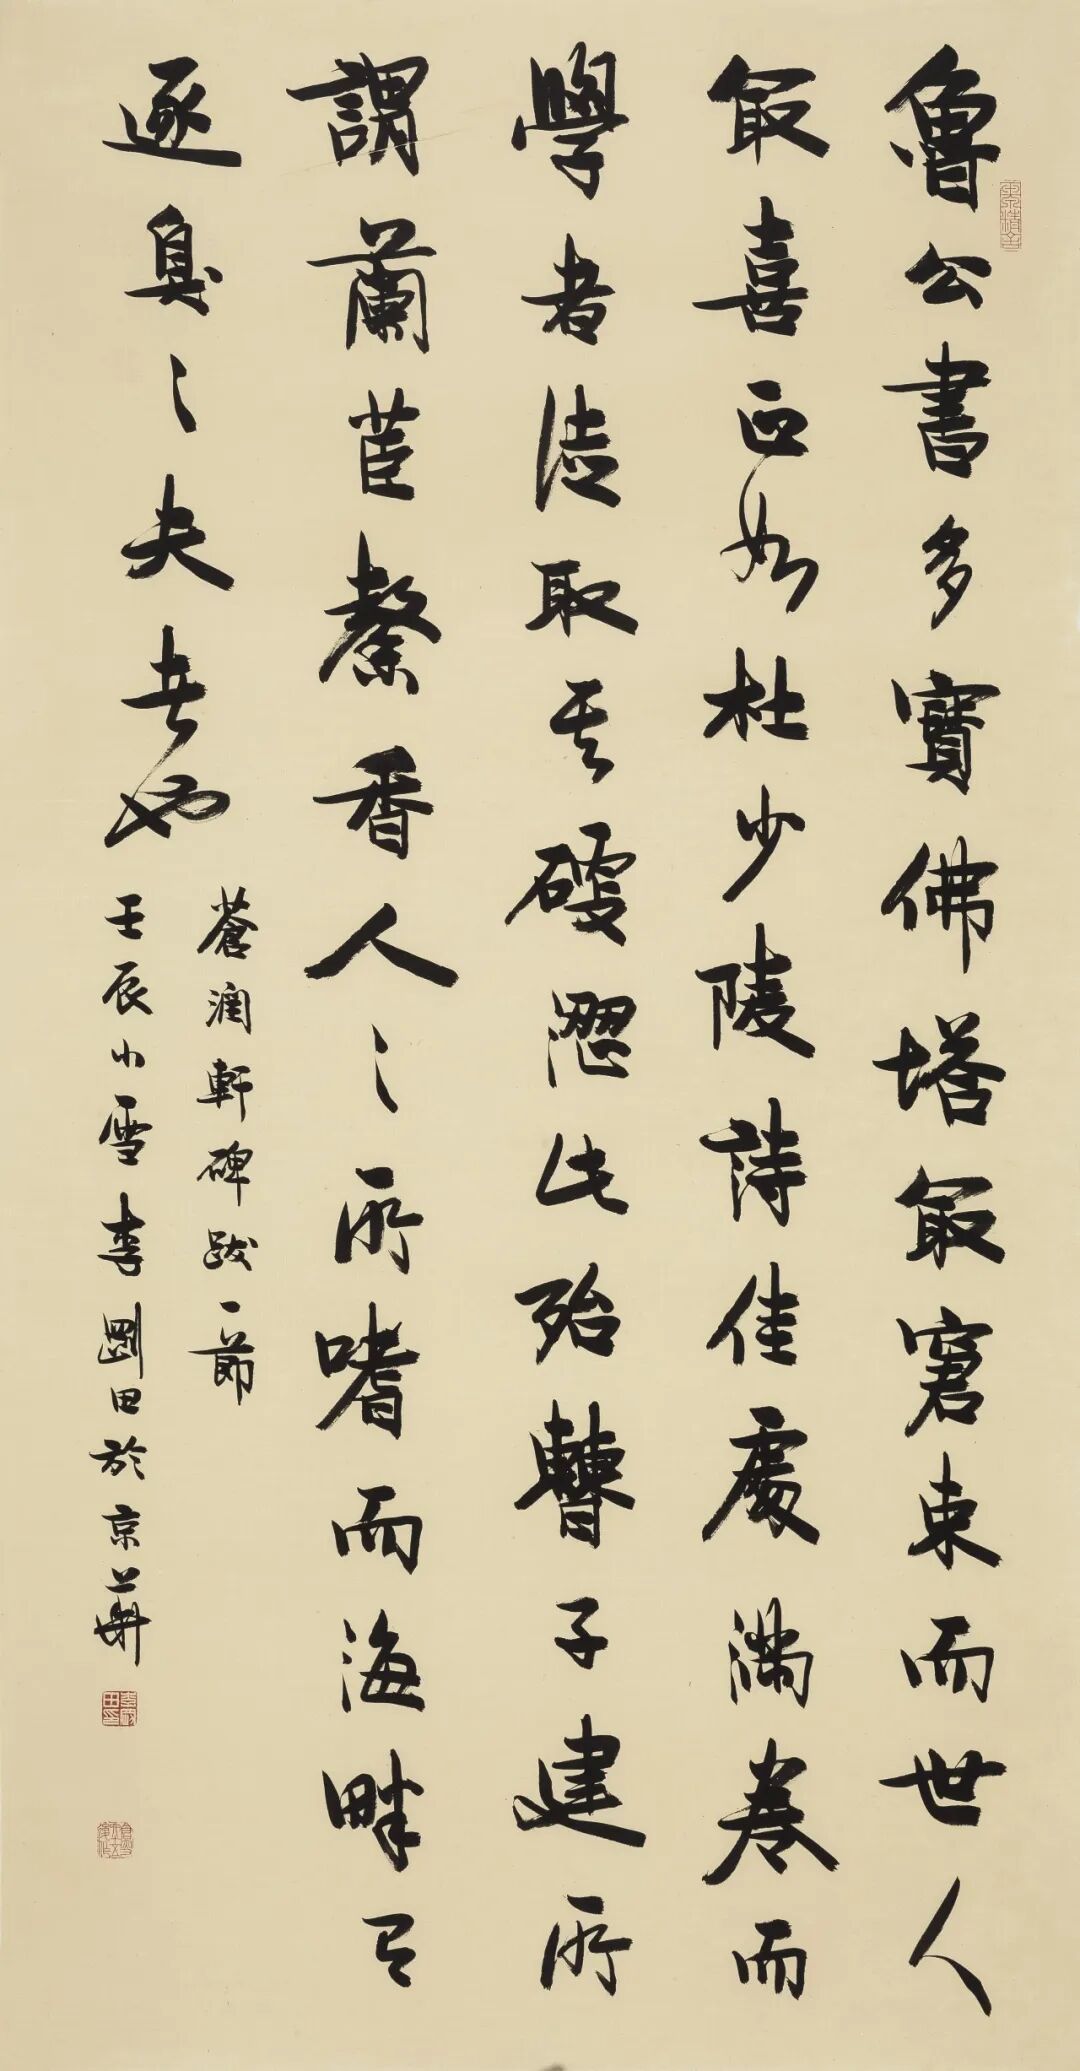 魯公書多寶佛塔最窘束而世人
最喜正如杜少陵詩佳處滿卷而
學者徒取其硬澀此殆曹子建所
謂蘭茝香人之所嗜而海畔有
逐臭之夫者也
蒼潤軒碑跋一節
壬辰小雪李剛田於京華